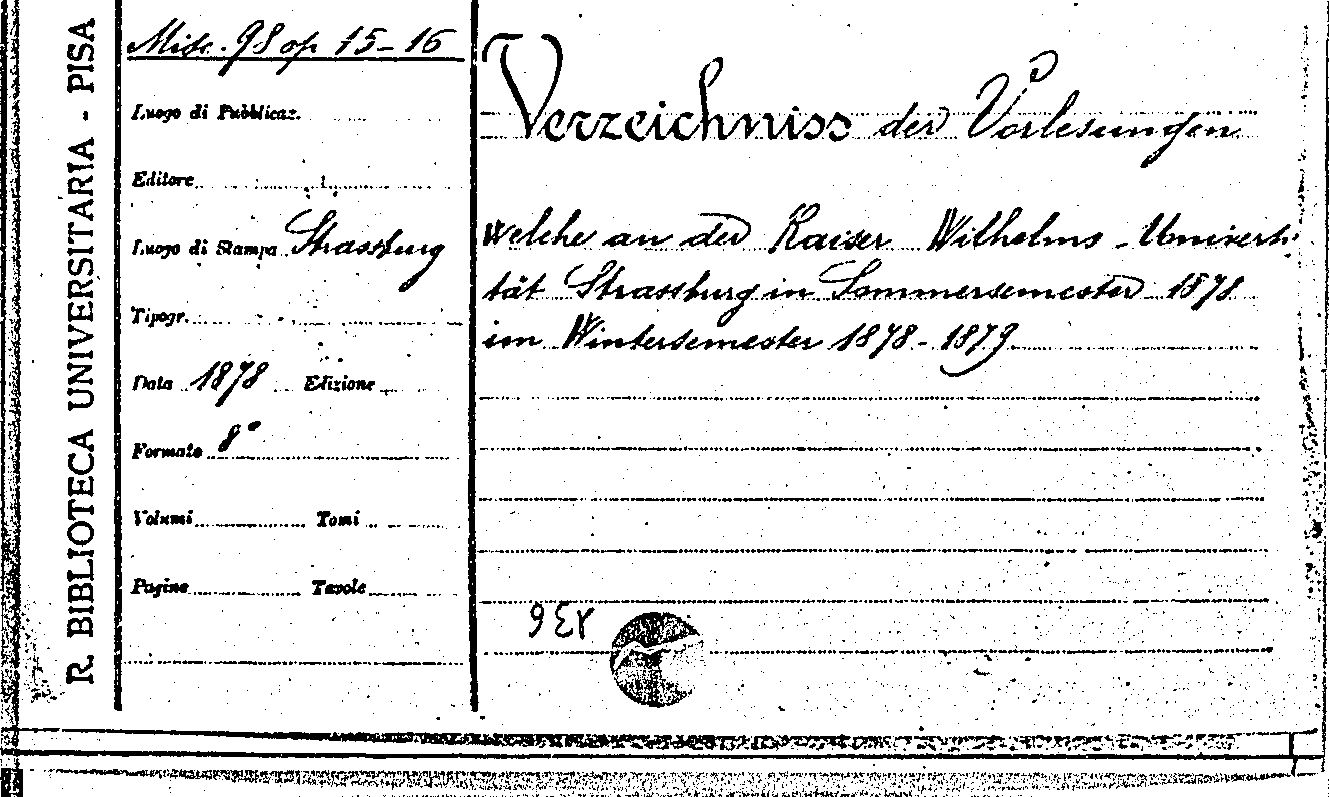 R. BIBLIOTECA UNIVERSITARIA - PISA
Misc. 98 op 15-16
Luogo di Pubblicaz.
Editore
Luogo di Stampa Strassburg
Tipogr.
Data 1878 Edizione
Formato 8°
Volumi Tomi
Pagine Tavole
Verzeichniss der Vorlesungen
welche an der Kaiser Wilhelms-Universi
tät Strassburg in Sommersemester 1878
im Wintersemester 1878-1879